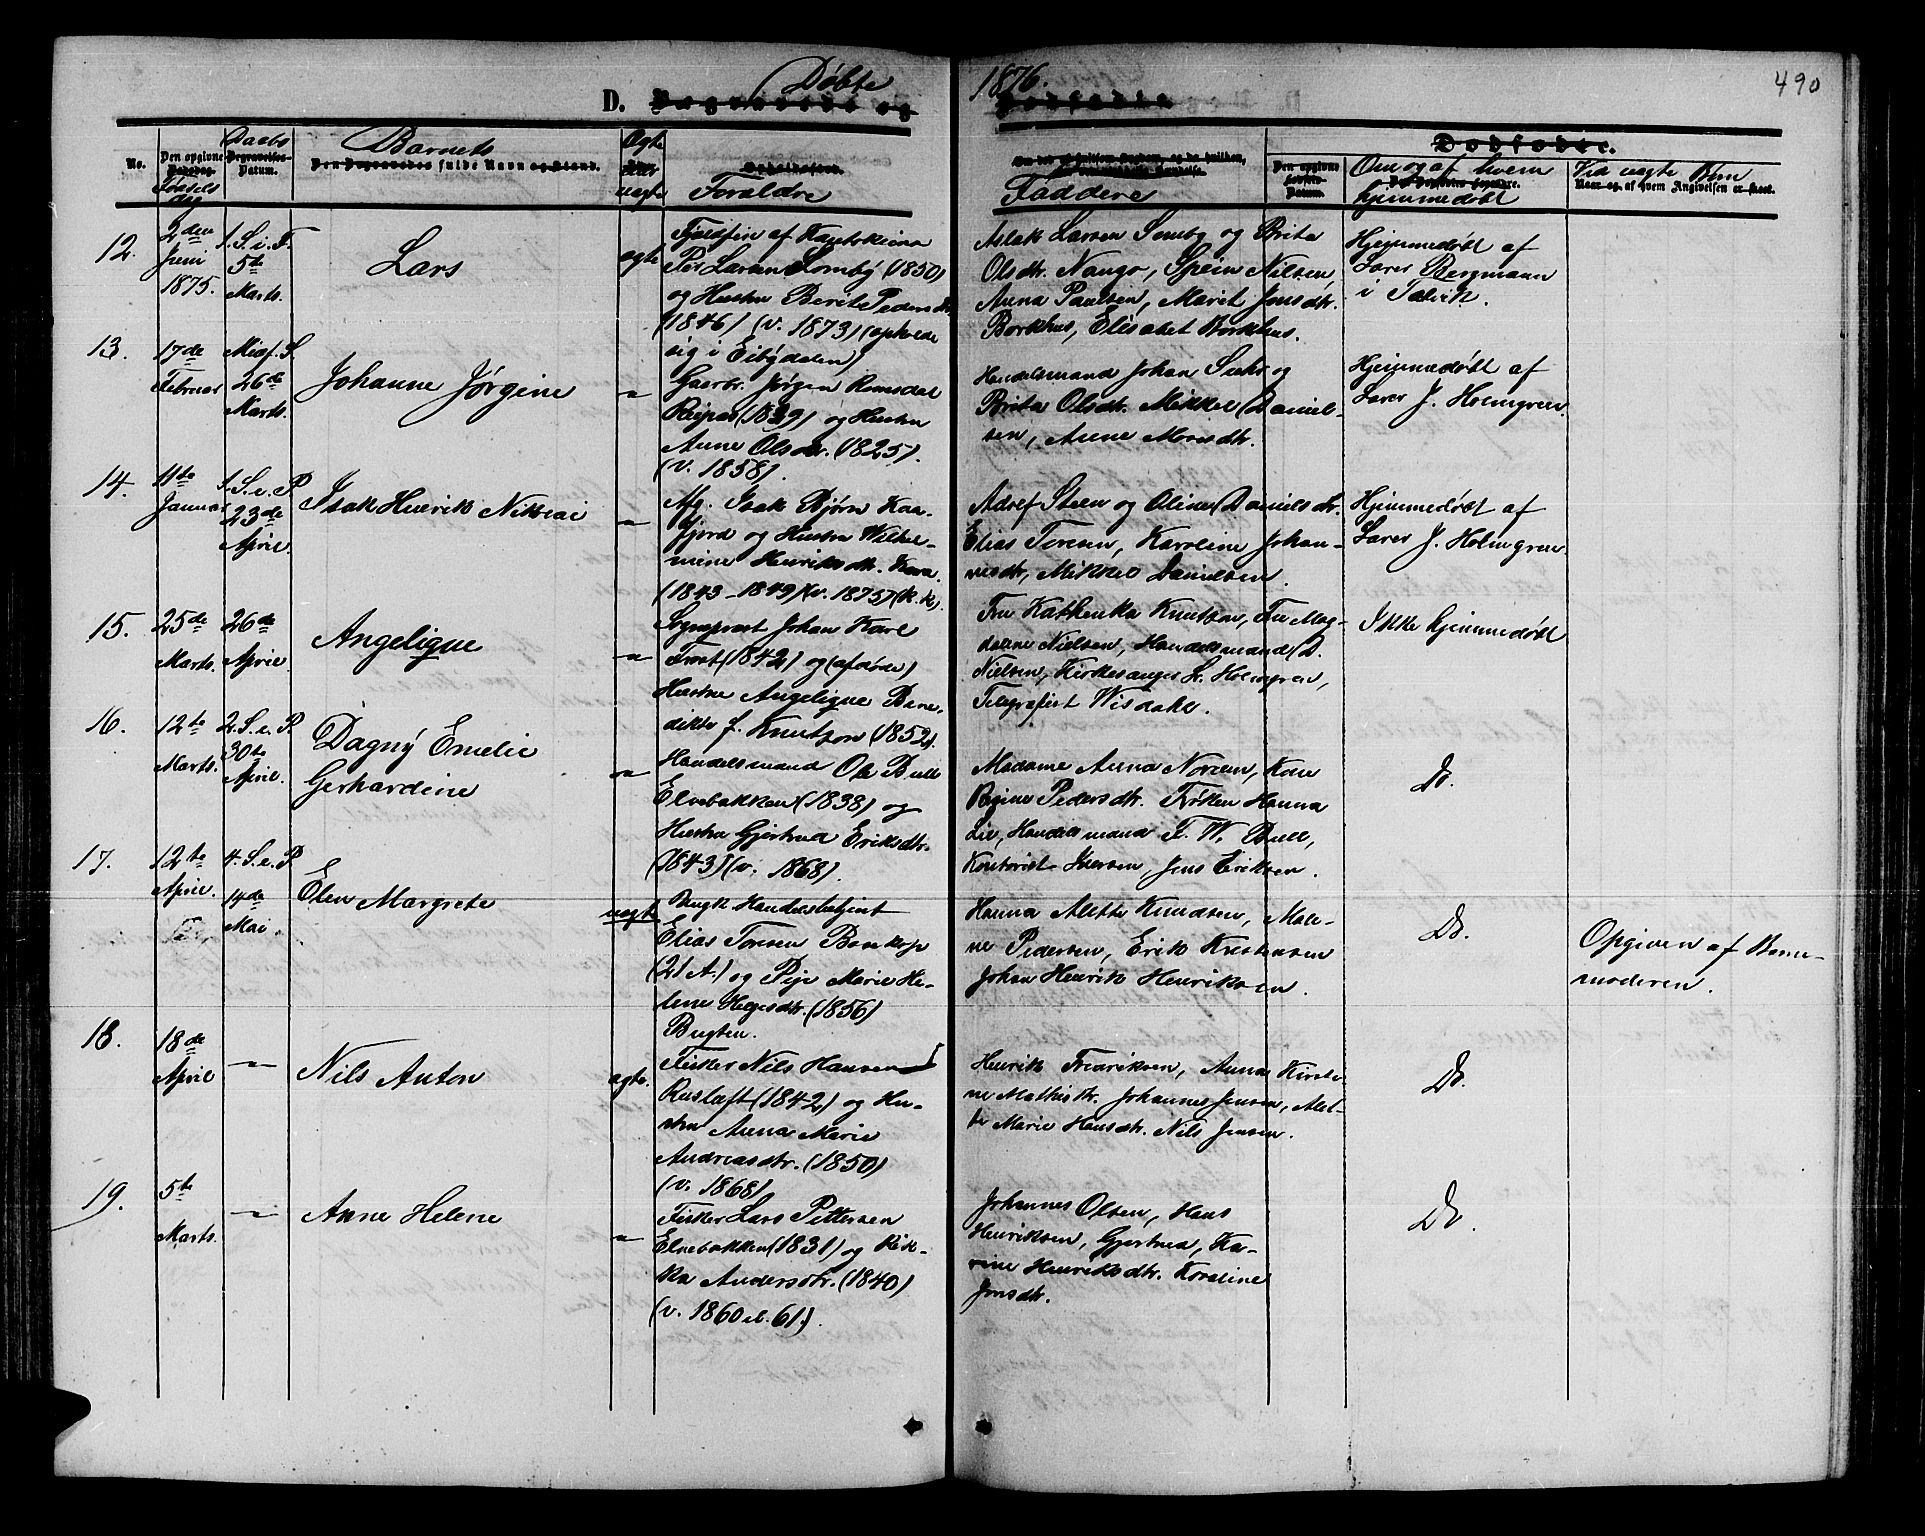 Døbte
1876.
490
D. Begravede og
Dødfødte
Dødfødte.
No.
Den opgivne
Dødsdag.
Fødsels
dag
Daabs
Begravelses-
Datum.
Barnets
Den Begravedes fulde Navn og Stand.
Ægte
uægte
Opholdssted.
Forældre
Faddere
Den opgivne
Fødsels-
Datum.
Om og af hvem
hjemmedøbt
Ved uægte Børn
Naar og af hvem Angivelsen er skeet.
12.
2den
Juni
1875.
1. S. i. F.
5te
Marts.
Lars
ægte
Fjeldfin af Kautokeino
Per Larsen Somby (1850)
og Hustru Berite Pedersdtr
(1846) (v. 1873) (opholde
sig i Eibydalen)
Aslak Larsen Somby og Brita
Olsdtr. Nango, Spein Nilsen,
Anna Paulsen, Marit Jonsdtr.
Borkhus, Elisabet Borkhus.
Hjemmedøbt af
Lærer Bergmann
i Talvik.
13.
17de
Februar
Midf. S.
26de
Marts.
Johanne Jørgine
"
Gaarbr. Jørgen Romsdal
Raipas (1839) og Hustru
Anne Olsdtr. (1825).
(v. 1858)
Handelsmand Johan Suhr og
Brita Olsdtr. Mikkel Daniel-
sen, Anne Moresdtr.
Hjemmedøbt af
Lærer J. Holmgren.
14.
11te
Januar
1. S. e. P.
23de
April.
Isak Henrik Nikolai
"
Afg. Isak Bjørn Kaa-
fjord og Hustru Wilhel-
mine Henriksdtr. Kova
(1843 – 1849) (v. 1875) (k.k)
Adolf Steen og Oline Danielsdtr.
Elias Toresen, Karoline Johan-
nesdtr, Mikkel Danielsen.
Hjemmedøbt af
Lærer J. Holmgren
15.
25de
Marts.
26de
April
Angelique
"
Sogneprest Johan Karl
Trost (1842) og (afdøde)
Hustru Angelique Bene-
dikte f. Knutzon (1852).
Fru Kathenka Knutzon, Fru Mag-
dalene Nielsen, Handelsmand D.
Nielsen, Kirkesanger L. Holmgren,
Telegrafist Wisdahl.
Ikke hjemmedøbt
16.
12te
Marts.
2. S. e. P.
30te
April.
Dagny Emelie
Gerhardine
"
Handelsmand Ole Bull
Elvebakken (1838) og
Hustru Gjertrud Eriksdtr.
(1843) (v. 1868).
Madame Anna Norum, Kone
Regine Pedersdtr. Frøken Hanna
Lie, Handelsmand F. W. Bull,
Kontorist Iversen, Jens Eriksen.
Do.
17.
12te
April.
4. S. e. P.
14de
Mai
Elen Margrete
uægte
Ungk. Handelsbetjent
Elias Toresen Bosekop
(21 A.) og Pige Marie He-
lene Hegesdtr. (1856)
Bugten.
Hanna Alette Knudsen, Male-
ne Pedersen, Erik Kristensen
Johan Henrik Henriksen.
Do.
Opgiven af Barne-
moderen.
18.
18de
April
"
Nils Anton
ægte.
Fisker Nils Hansen
Rusluft (1842) og Hu-
stru Anna Marie
Andreasdtr. (1850)
(v. 1868)
Henrik Fredriksen, Anna Kirsti-
ne Mathisdtr. Johannes Jensen, Alet-
te Marie Hansdtr. Nils Jensen.
Do.
19.
5te
Marts.
"
Anne Helene
"
Fisker Lars Pettersen
Elvebakken (1831) og Rik-
ka Andersdtr. (1840)
(v. 1860 el. 61.)
Johannes Olsen, Hans
Henriksen, Gjertrud, Ka-
rine Henriksdtr. Karoline
Jonsdtr.
Do.